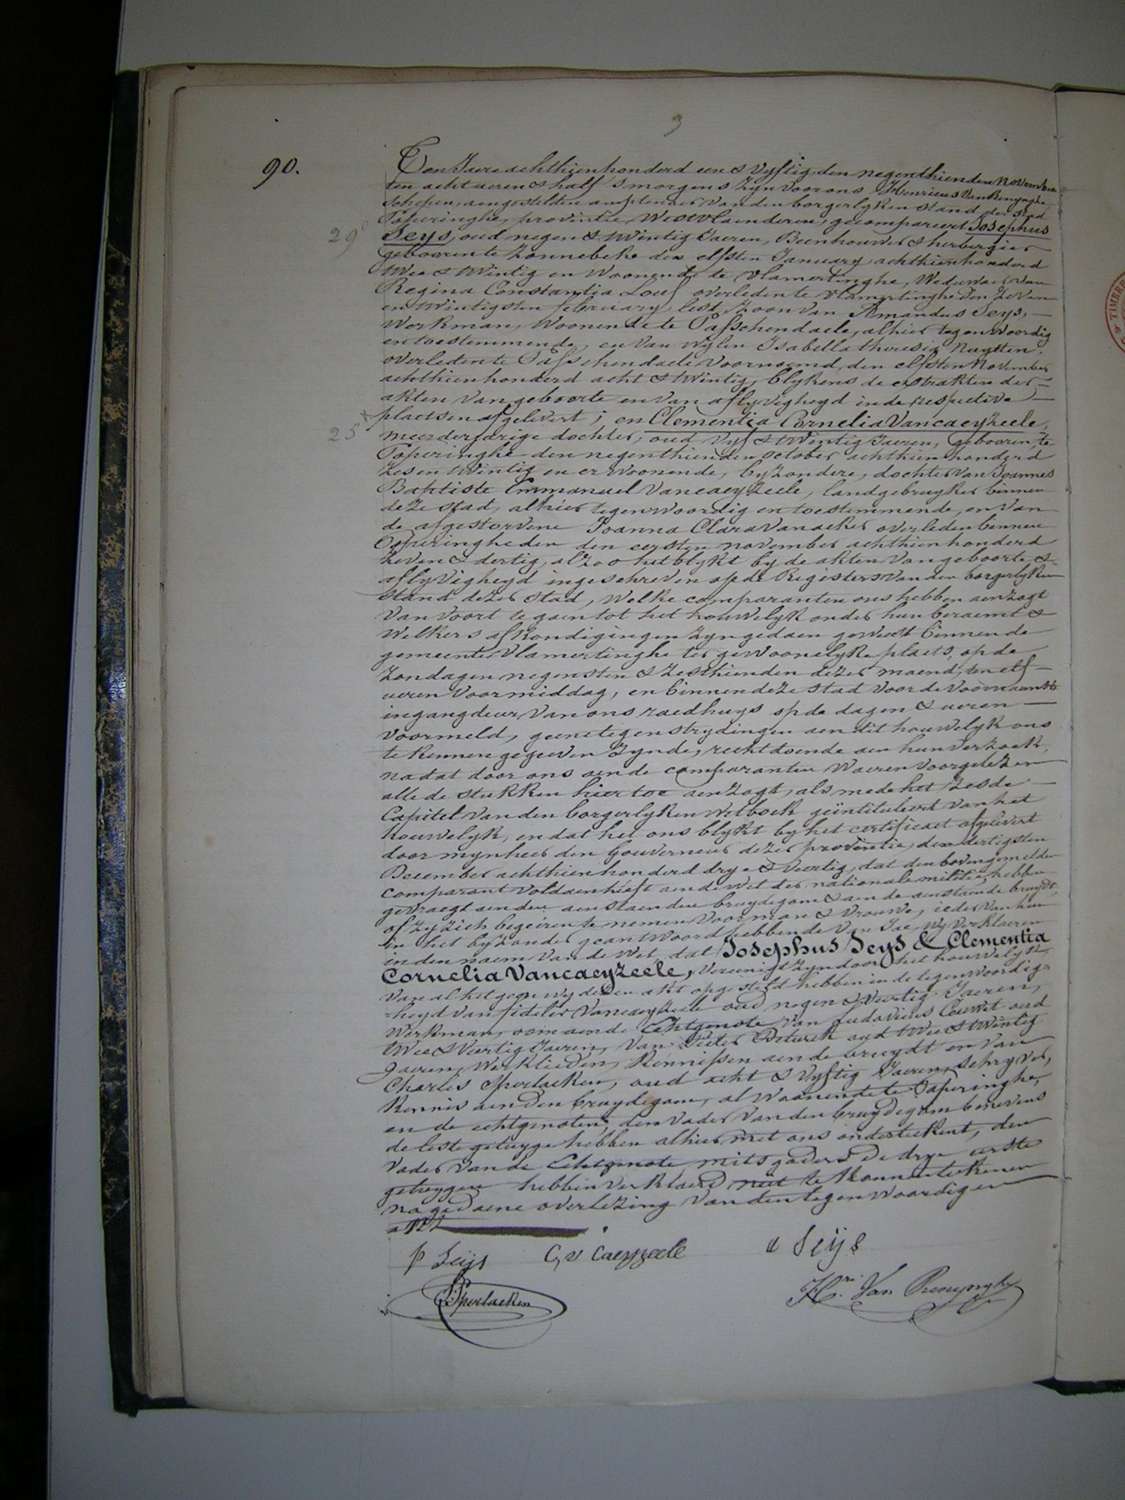 3
90.
Ten Jaere achthienhonderd een & vyftig, den negenthienden November
ten acht ueren & half 's morgens zyn voor ons Henricus Van Renynghe
schepen, aengestelden amptenaer van den borgerlyken stand der stad
Poperinghe, provintie Westvlaenderen, gecompareert Josephus
29
Seys, oud negen & twintig Jaeren, Beenhouwer & herbergier
gebooren te Zonnebeke den elfsten January achthienhonderd
twee & twintig en woonende te Vlamertinghe, Weduwaer van
Regina Constantia overleden te Vlamertinghe den zeven
en twintigsten february lest, zoon van Amandus Seys,
Werkman, woonende te Passchendaele, alhier tegenwoordig
en toestemmende, en van wylen Isabella theresia Nuytten,
overleden te Passchendaele voornoemd, den elfsten November
achthienhonderd acht & twintig, blykens de extrakten der
akten van geboorte en van aflyvigheyd in de respective
plaetsen afgelevert; en Clementia Cornelia Vancaeyzeele,
25
meerderjarige dochter, oud vyf & twintig Jaeren, gebooren te
Poperinghe den negenthienden october achthienhonderd
zes en twintig en er woonende, byzondere, dochter van Joannes
Baptiste Emmanuel Vancaeyzeele, landgebruyker binnen
deze stad, alhier tegenwoordig en toestemmende, en van
de afgestorvene Joanna Clara Vanacker overleden binnen
Poperinghe den den eersten november achthienhonderd
zeven & dertig, alzoo het blykt by de akten van geboorte &
aflyvigheyd ingeschreven op de Registers van den borgerlyken
stand dezer stad, welke comparanten ons hebben aenzogt
van voort te gaen tot het houwelyk onder hun beraemt &
welkers afkondigingen zyn gedaen geweest binnen de
gemeente Vlamertinghe ter gewoonelyke plaets, op de
zondagen negensten & zesthienden dezer maend, ten elf
ueren voormiddag, en binnen deze stad voor de voornaemste
ingangdeur van ons raedhuys op de dagen & ueren
voormeld, geene tegenstrydingen aen dit houwelyk ons
te kennen gegeven zynde, recht doende aen hun verzoek,
na dat door ons aen de comparanten waeren voorgelezen
alle de stukken hier toe aenzogt, als mede het zesde
Capitel van den borgerlyken wetboek geïntituleert van het
houwelyk, en dat het ons blykt by het certificaet afgelevert
door mynheer den Gouverneur dezer provintie, den dertigsten
December achthienhonderd drye & veertig, dat den bovengemelden
comparant voldaen heeft aen de wet der nationale militie, hebben
gevraegt aen den aenstaenden bruydegom & aen de aenstaende bruydt
of zy zich begeeren te nemen voor man & vrouwe, ieder van hun
in het byzonder geantwoord hebbende van Jae, wy verklaeren
in den naem van de Wet, dat Josephus Seys & Clementia
Cornelia Vancaeyzeele, vereenigt zyn door het houwelyk
van al het gene wy dezen akt opgesteld hebben in de tegenwoordig-
heyd van fideles Vancaeyzeele oud negen & veertig Jaeren,
Werkman, oom aen de Echtgenote, van Ludovicus oud
twee & veertig Jaeren, van Pieter oud twee & twintig
Jaeren, Werklieden, kennissen aen de bruydt en van
Charles Sperlaeken, oud acht & vyftig Jaeren, schryver,
kennis aen den bruydegom, al woonende te Poperinghe,
en de echtgenoten, den vader van den bruydegom benevens
de leste getuyge hebben alhier met ons onderteekent, den
vader van de Echtgenote mitsgaders de drye eerste
getuygen hebben verklaerd niet te konnen teekenen
na gedaene overlezing van den tegenwoordigen
akt
p Seijs C. v Caeyzeele a Seijs
Sperlaeken Hri Van Renynghe